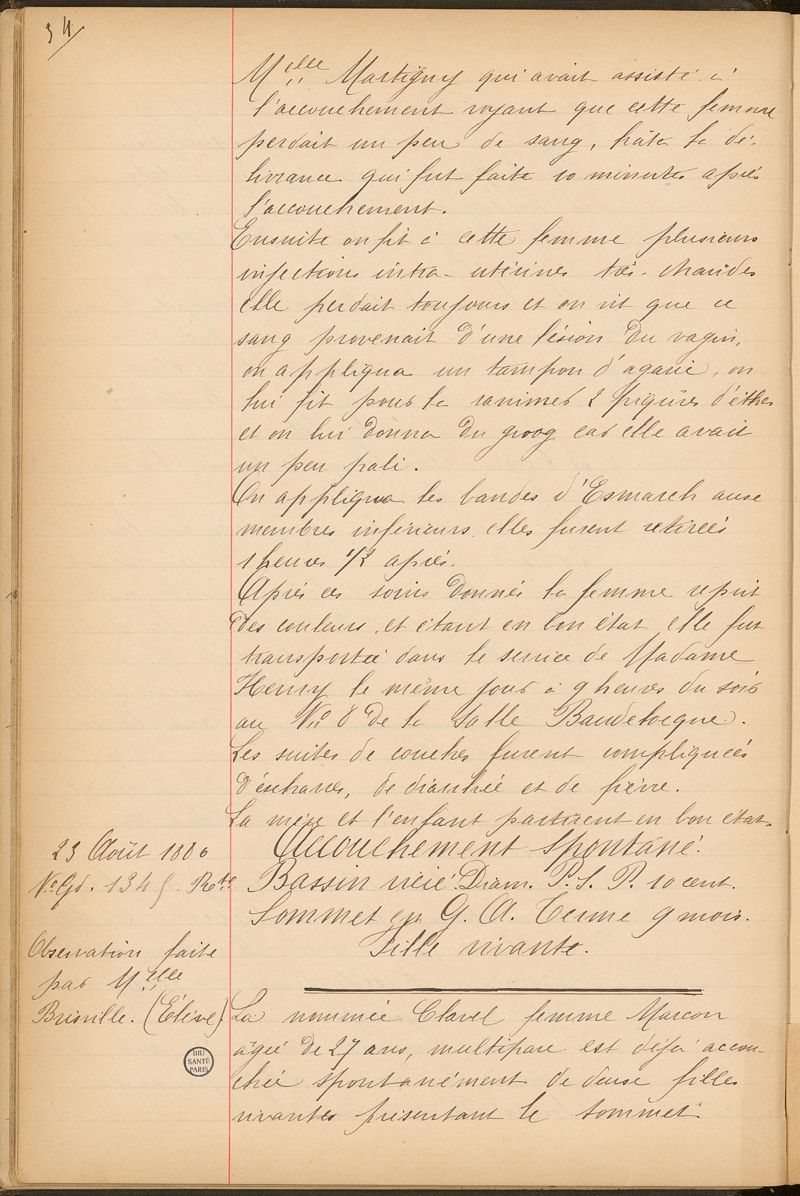 34/
Melle Martigny qui avait assisté à
l'accouchement voyant que cette femme
perdait un peu de sang, hâta la dé-
livrance qui fut faite 10 minutes après
l'accouchement.
Ensuite on fit à cette femme plusieurs
injections intra-utérines très-chaudes
elle perdait toujours et on vit que ce
sang provenait d'une lésion du vagin,
on appliqua un tampon d'agaric, on
lui fit pour la ranimer 2 piqûres d'éther
et on lui donna du groog car elle avait
un peu pali.
On appliqua les bandes d'Esmarch aux
membres inférieurs elles furent retirées
1 heures 1/2 après.
Après ces soins donnés la femme reprit
des couleurs, et étant en bon état elle fut
transportée dans le service de Madame
Henry le même jour à 9 heures du soir
au No 8 de la salle Baudelocque.
Les suites de couches furent compliquées
d'escharres, de diarrhée et de fièvre.
La mère et l'enfant partirent en bon état.
23 Août 188
No Gd. 134
Accouchement spontané.
Bassin vicié Diam. P. S. P. 10 cent.
Sommet en G. A. Terme 9 mois.
Fille vivante.
Observation faite
par Melle
Brisville. (Elève)
La nommée Clavel femme Marcon
âgée de 27 ans, multipare est déjà accou-
chée spontanément de deux filles
vivantes présentant le sommet
BIU
SANTÉ
PARIS